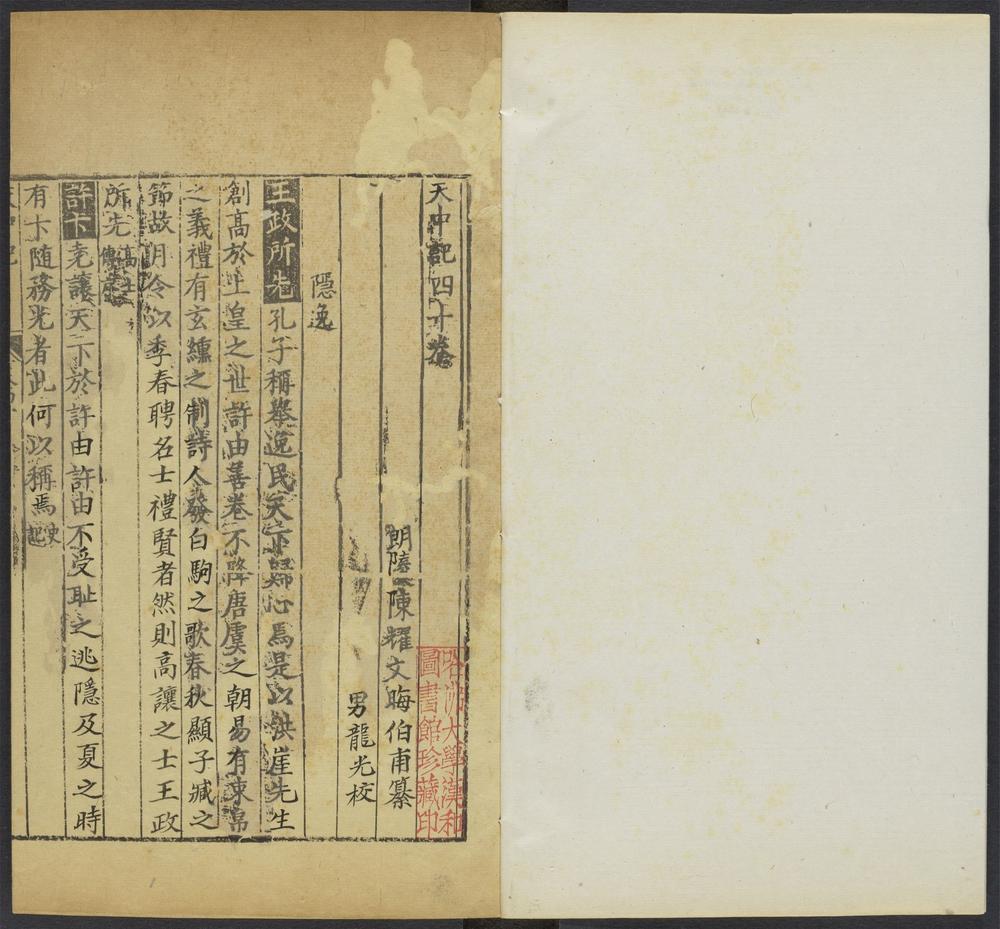 天中記四十卷
朗陵陳耀文晦伯甫纂
男龍光校
隱逸
王政所先孔子稱舉逸民天下歸心焉是以洪崖先生
創高於上皇之世許由善卷不降唐虞之朝易有束帛
之義禮有玄纁之制詩人發白駒之歌春秋顯子臧之
節故月令以季春聘名士禮賢者然則高讓之士王政
所先高士傳序
許卞堯讓天下於許由許由不受耻之逃隱及夏之時
有卞随務光者此何以稱焉史記
哈佛大學漢和
圖書館珍藏印